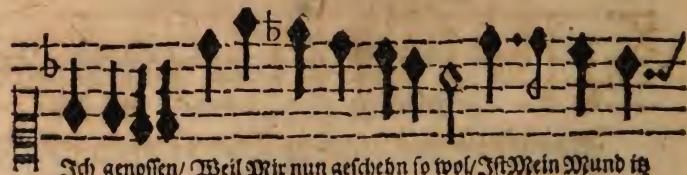 Ich genossen/ Weil Mir nun geschehn so wol/ Ist Mein Mund itz